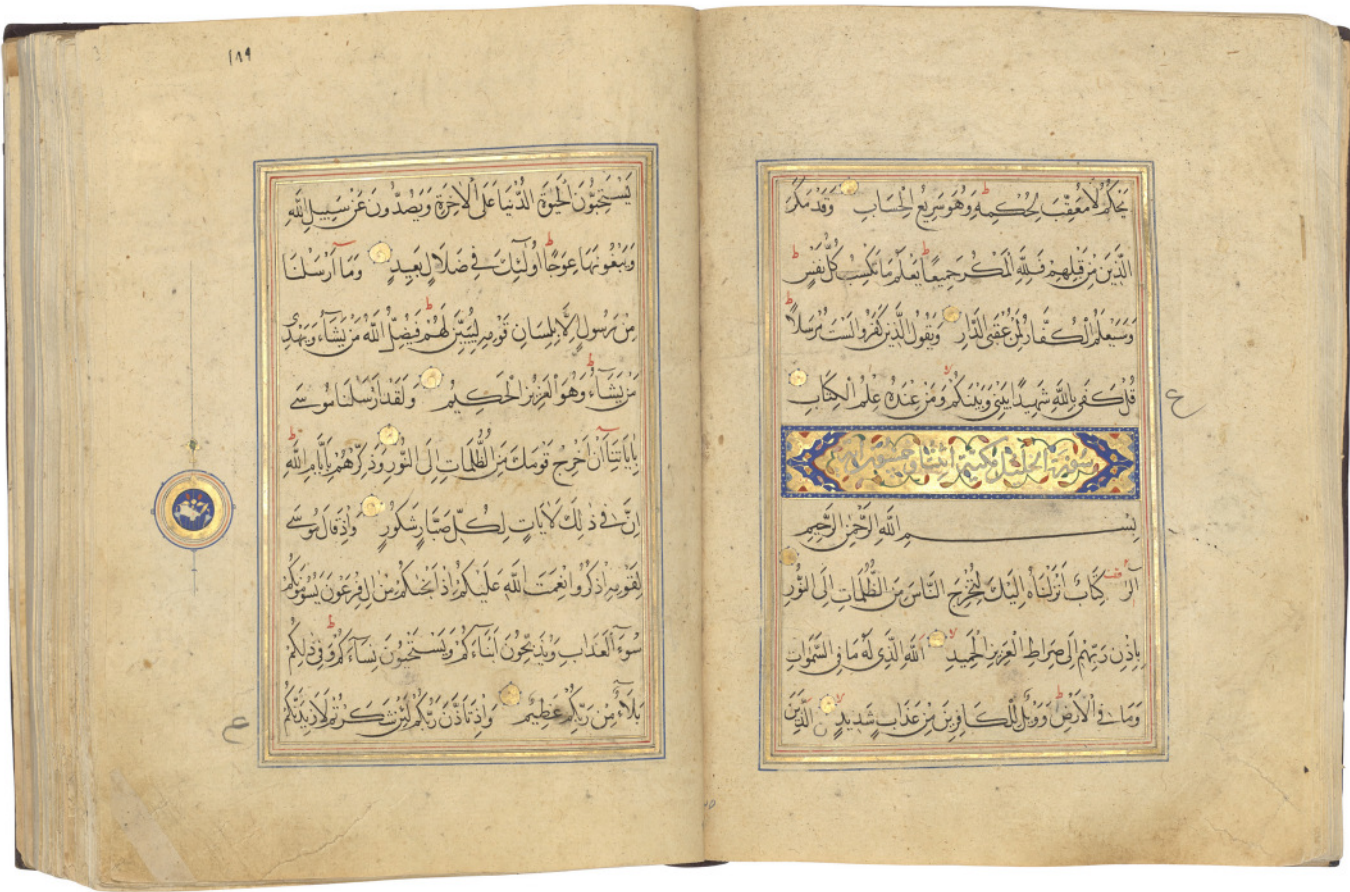 يَحْكُمُ لَا مُعَقِّبَ لِحُكْمِهِ وَهُوَ سَرِيعُ الْحِسَابِ وَقَدْ مَكَرَ
الَّذِينَ مِنْ قَبْلِهِمْ فَلِلَّهِ الْمَكْرُ جَمِيعًا يَعْلَمُ مَا تَكْسِبُ كُلُّ نَفْسٍ
وَسَيَعْلَمُ الْكُفَّارُ لِمَنْ عُقْبَى الدَّارِ وَيَقُولُ الَّذِينَ كَفَرُوا لَسْتَ مُرْسَلًا
قُلْ كَفَى بِاللَّهِ شَهِيدًا بَيْنِي وَبَيْنَكُمْ وَمَنْ عِنْدَهُ عِلْمُ الْكِتَابِ
ع
سورة الخليل مكية اثنتان وخمسون اية
بِسْمِ اللَّهِ الرَّحْمَنِ الرَّحِيمِ
الر كِتَابٌ أَنْزَلْنَاهُ إِلَيْكَ لِتُخْرِجَ النَّاسَ مِنَ الظُّلُمَاتِ إِلَى النُّورِ
بِإِذْنِ رَبِّهِمْ إِلَى صِرَاطِ الْعَزِيزِ الْحَمِيدِ اللَّهِ الَّذِي لَهُ مَا فِي السَّمَوَاتِ
وَمَا فِي الْأَرْضِ وَوَيْلٌ لِلْكَافِرِينَ مِنْ عَذَابٍ شَدِيدٍ الَّذِينَ
١٨٩
يَسْتَحِبُّونَ الْحَيَوةَ الدُّنْيَا عَلَى الْآخِرَةِ وَيَصُدُّونَ عَنْ سَبِيلِ اللَّهِ
وَيَبْغُونَهَا عِوَجًا أُولَئِكَ فِي ضَلَالٍ بَعِيدٍ وَمَا أَرْسَلْنَا
مِنْ رَسُولٍ إِلَّا بِلِسَانِ قَوْمِهِ لِيُبَيِّنَ لَهُمْ فَيُضِلُّ اللَّهُ مَنْ يَشَاءُ وَيَهْدِي
مَنْ يَشَاءُ وَهُوَ الْعَزِيزُ الْحَكِيمُ وَلَقَدْ أَرْسَلْنَا مُوسَى
بِآيَاتِنَا أَنْ أَخْرِجْ قَوْمَكَ مِنَ الظُّلُمَاتِ إِلَى النُّورِ وَذَكِّرْهُمْ بِأَيَّامِ اللَّهِ
إِنَّ فِي ذَلِكَ لَآيَاتٍ لِكُلِّ صَبَّارٍ شَكُورٍ وَإِذْ قَالَ مُوسَى
لِقَوْمِهِ اذْكُرُوا نِعْمَتَ اللَّهِ عَلَيْكُمْ إِذْ أَنْجَكُمْ مِنْ آلِ فِرْعَوْنَ يَسُومُونَكُمْ
سُوءَ الْعَذَابِ وَيُذَبِّحُونَ أَبْنَاءَكُمْ وَيَسْتَحْيُونَ نِسَاءَكُمْ وَفِي ذَلِكُمْ
بَلَاءٌ مِنْ رَبِّكُمْ عَظِيمٌ وَإِذْ تَأَذَّنَ رَبُّكُمْ لَئِنْ شَكَرْتُمْ لَأَزِيدَنَّكُمْ
ع